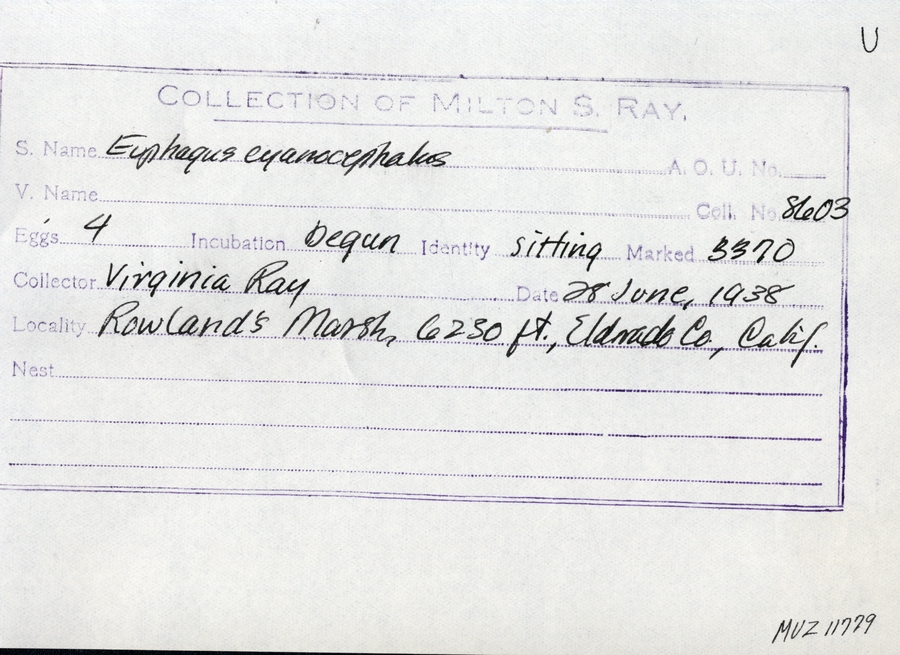 U
COLLECTION OF MILTON S. RAY.
S. Name Euphagus cyanocephalus A. O. U. No.
V. Name Coll. No. 8603
Eggs 4 Incubation begun Identity sitting Marked 3370
Collector Virginia Ray Date 28 June, 1938
Locality Rowland's Marsh, 6230 ft., Eldorado Co., Calif.
Nest
MVZ 11779